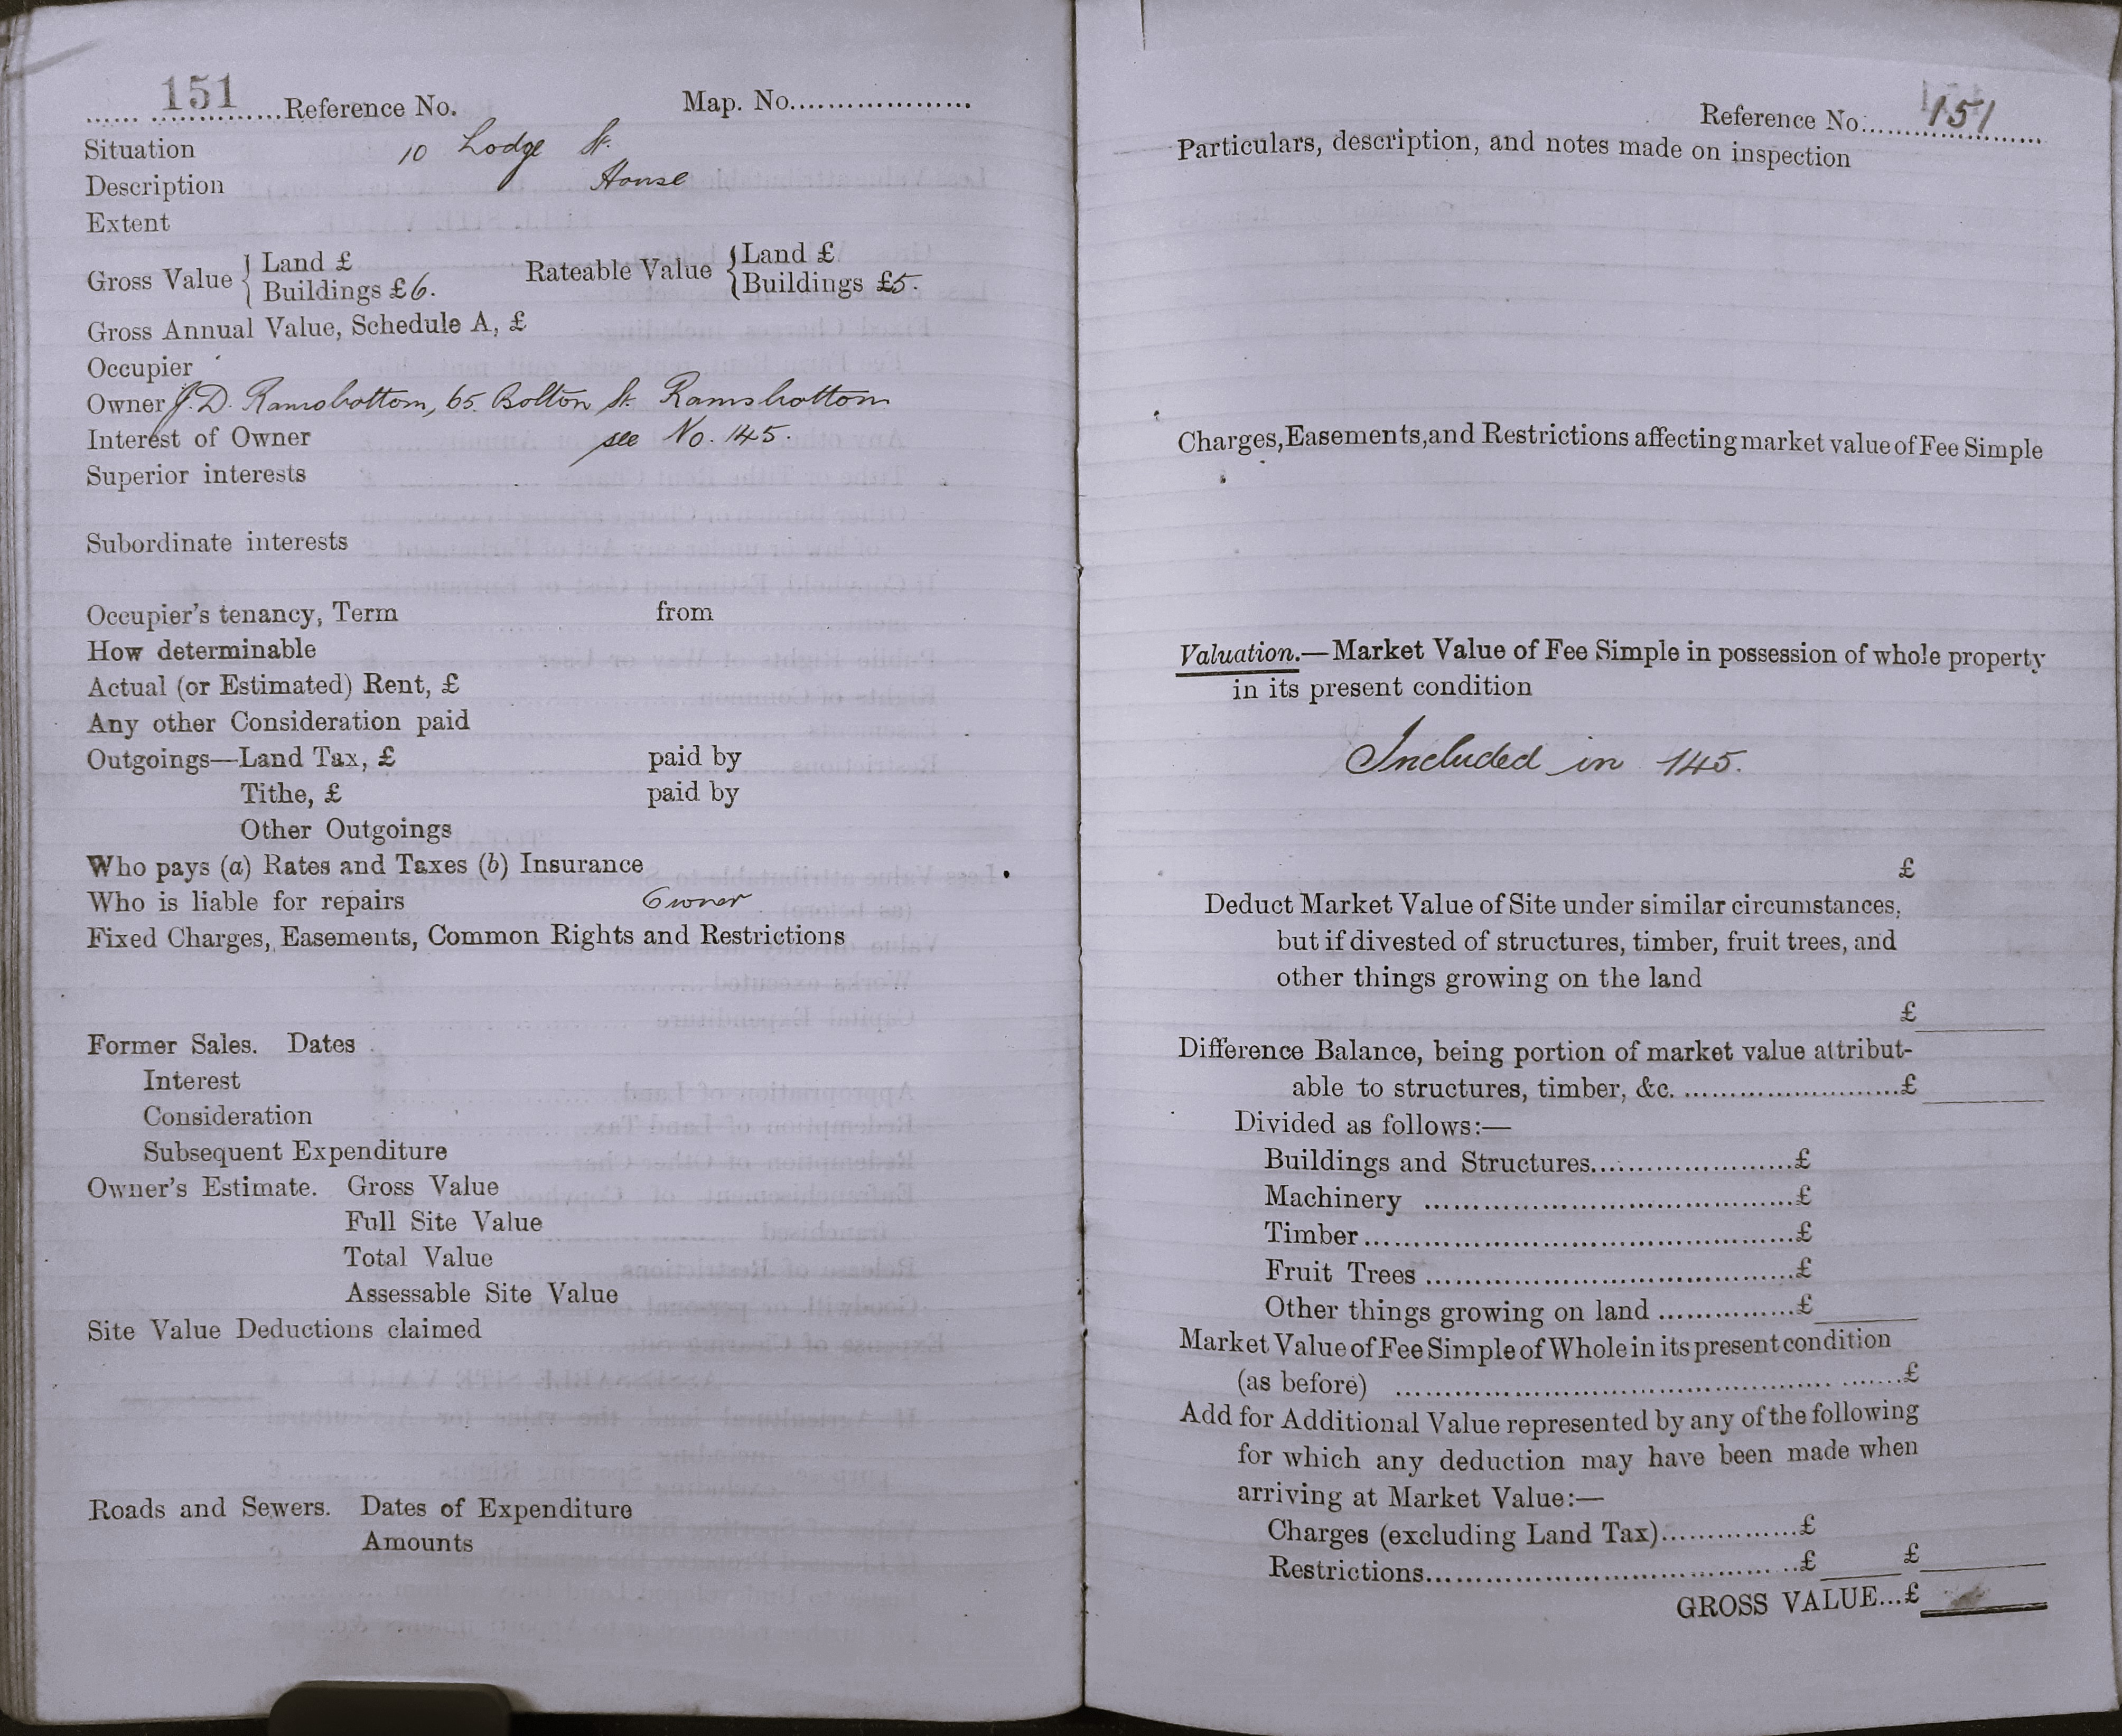 151
...... ..............Reference No. Map. No....................
Situation 10 Lodge St.
Description House
Extent
Gross Value { Land £
Buildings £6.
Rateable Value { Land £
Buildings £5.
Gross Annual Value, Schedule A, £
Occupier
Owner J. D. Ramsbottom, 65. Bolton St. Ramsbottom
Interest of Owner see No. 145.
Superior interests
Subordinate interests
Occupier's tenancy, Term from
How determinable
Actual (or Estimated) Rent, £
Any other Consideration paid
Outgoings—Land Tax, £ paid by
Tithe, £ paid by
Other Outgoings
Who pays (a) Rates and Taxes (b) Insurance
Who is liable for repairs Owner
Fixed Charges, Easements, Common Rights and Restrictions
Former Sales. Dates
Interest
Consideration
Subsequent Expenditure
Owner's Estimate. Gross Value
Full Site Value
Total Value
Assessable Site Value
Site Value Deductions claimed
Roads and Sewers. Dates of Expenditure
Amounts
Reference No. 151
Particulars, description, and notes made on inspection
Charges, Easements, and Restrictions affecting market value of Fee Simple
Valuation.—Market Value of Fee Simple in possession of whole property
in its present condition
Included in 145.
£
Deduct Market Value of Site under similar circumstances,
but if divested of structures, timber, fruit trees, and
other things growing on the land
£
Difference Balance, being portion of market value attribut-
able to structures, timber, &c. ........................£
Divided as follows:—
Buildings and Structures......................£
Machinery ......................................£
Timber............................................£
Fruit Trees ......................................£
Other things growing on land ..............£
Market Value of Fee Simple of Whole in its present condition
(as before) ....................................................£
Add for Additional Value represented by any of the following
for which any deduction may have been made when
arriving at Market Value:—
Charges (excluding Land Tax)...............£
Restrictions......................................£ £
GROSS VALUE...£